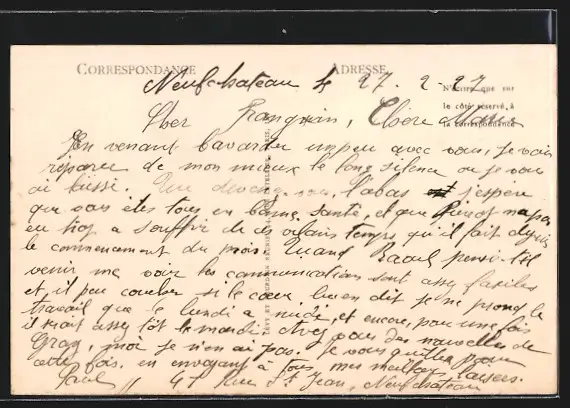 CORRESPONDANCE ADRESSE
Neufchateau le 27. 2-27
N'écrire que sur
le côté réservé à
la correspondance
Cher Frangin, Chère
En venant bavarder un peu avec vous, je vais
réparer de mon mieux le long silence où je vous
ai laissé. Que devenez vous, là bas j'espère
que vous êtes tous en bonne santé, et que Pierrot n'a pas
eu trop a souffrir de ces vilains temps qu'il fait depuis
le commencement du mois. Quand Raoul pense-t-il
venir me voir les communications sont assez faciles
et, il peu coucher si le cœur lui en dit je ne prend le
travail que le lundi a midi, et encore, pour une fois
il serait assez tôt le mardi. Avez vous des nouvelles de
moi je n'en ai pas. Je vous quitte pour
cette fois, en envoyant à tous, mes meilleurs baisers.
Paul 47 Rue St Jean, Neufchateau